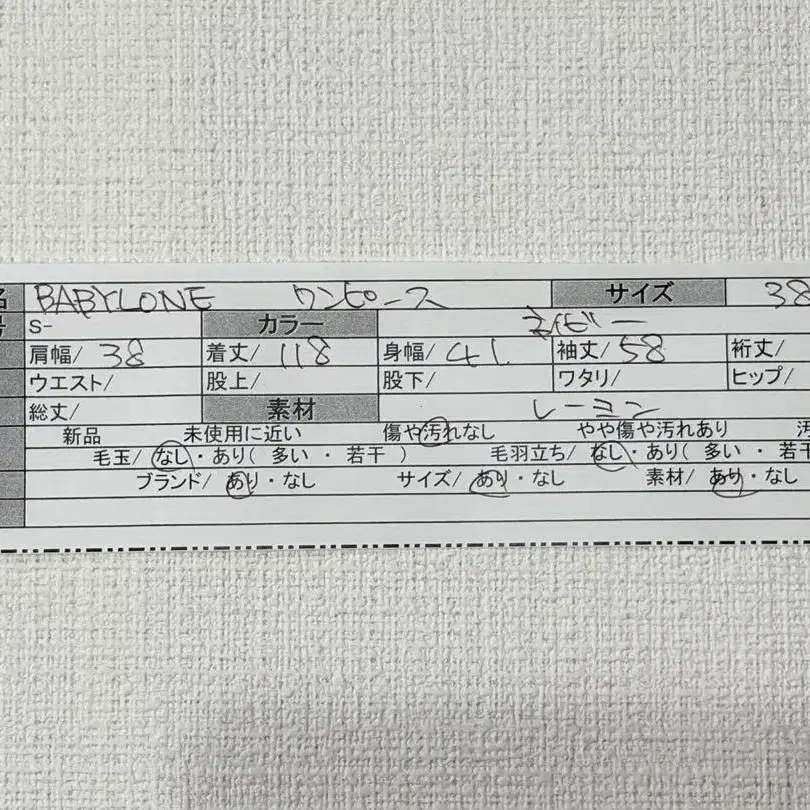 名 BABYLONE ワンピース サイズ 38
号 S- カラー ネイビー
肩幅/ 38 着丈/ 118 身幅/ 41 袖丈/ 58 裄丈/
ウエスト/ 股上/ 股下/ ワタリ/ ヒップ/
総丈/ 素材 レーヨン
新品 未使用に近い 傷や汚れなし やや傷や汚れあり 汚
毛玉/ なし・あり( 多い ・ 若干 ) 毛羽立ち/ なし・あり( 多い ・ 若干
ブランド/ あり・なし サイズ/ あり・なし 素材/ あり・なし